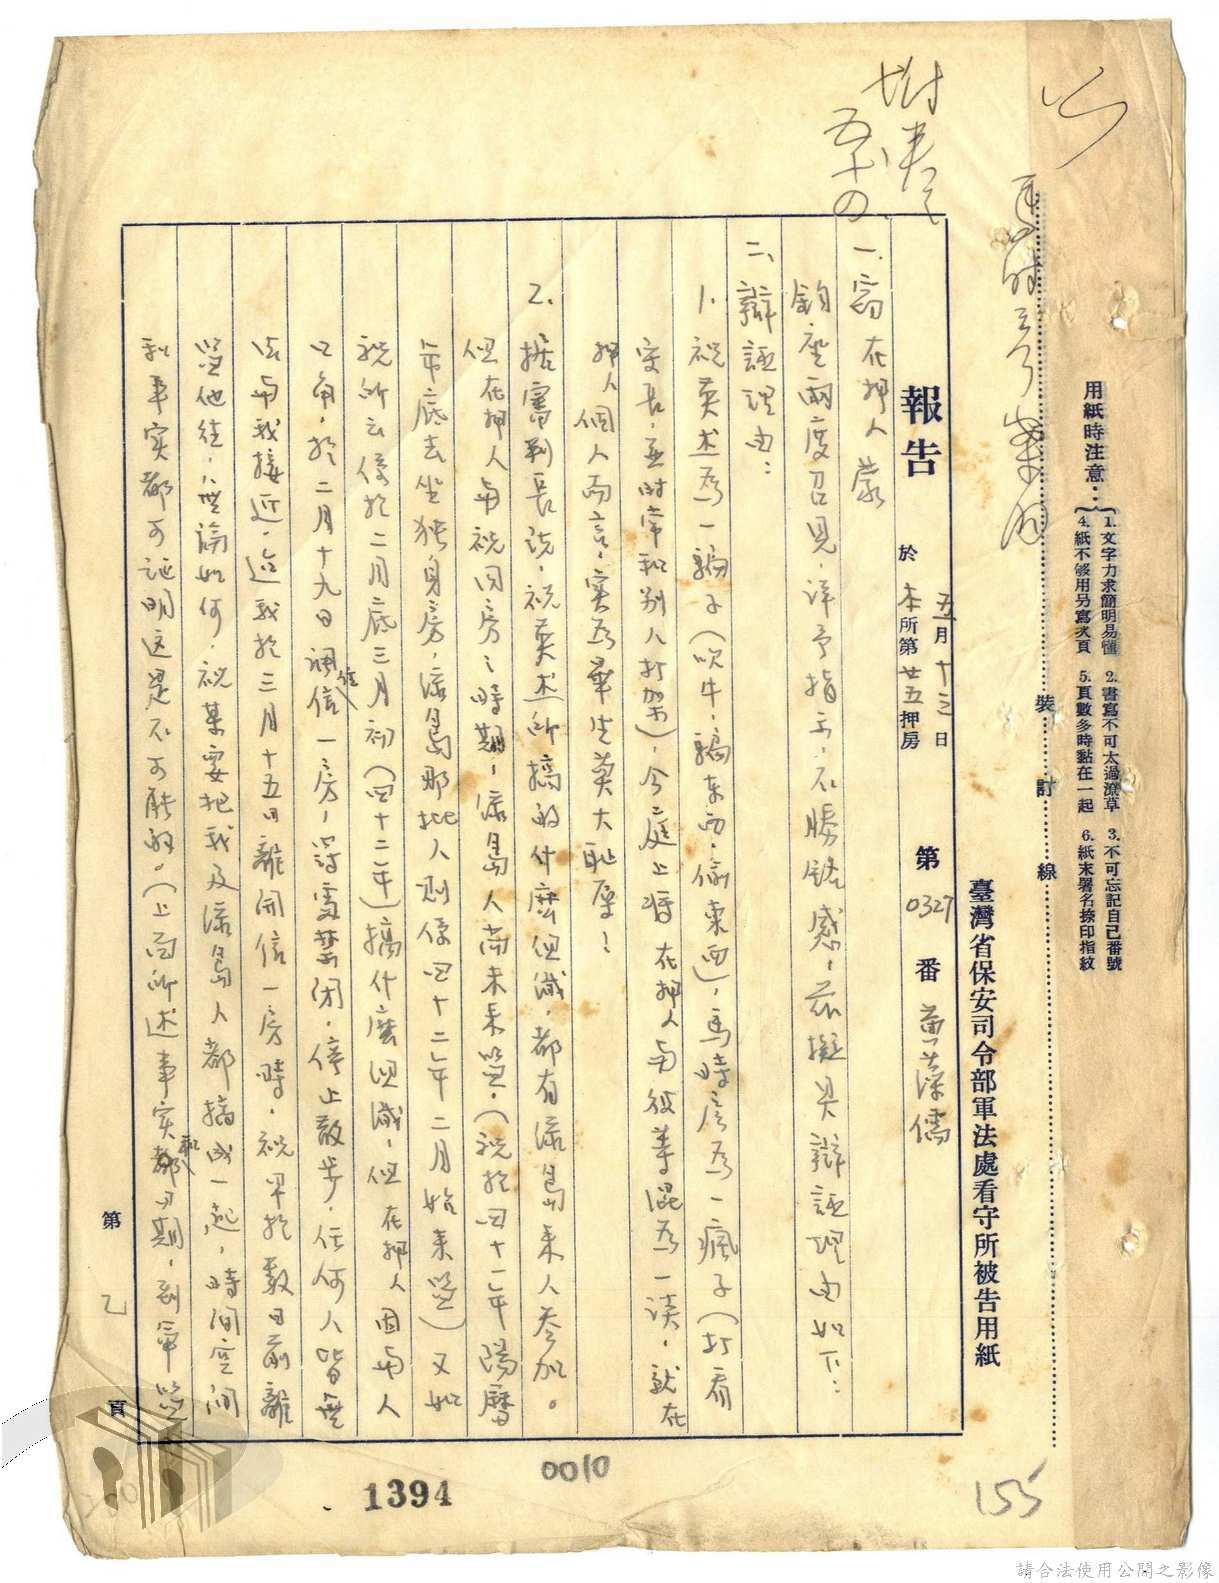 用紙時注意：
1.文字力求簡明易懂 2.書寫不可太過潦草 3.不可忘記自己番號
4.紙不够用另寫次頁 5.頁數多時黏在一起 6.紙末署名捺印指紋
裝訂線
臺灣省保安司令部軍法處看守所被告用紙
報告
五月十三日
於本所第廿五押房
第0327番
一、竊在押人蒙
鈞座兩度召見，詳予指示，不勝銘感，茲擬具辯誣理由如下：
二、辯誣理由：
1.祝英杰為一騙子（吹牛，騙東西，偷東西），馬時彥為一瘋子（打看
守長，並时常和别人打架），今庭上將在押人与彼等混為一談，就在
押人個人而言，實為畢生莫大恥辱！
2.据審判長説，祝英杰所搞的什麽組織，都有綠島來人参加。
但在押人与祝同房之時期，綠島人尚未來監，（祝於四十一年陽曆
年底去坐独身房，綠島那批人则係四十二年二月始來監）又如
祝所云係於二月底三月初（四十二年）搞什麽组織，但在押人因与人
口角，於二月十九日調往信一房，當處禁闭，停止散步，任何人皆無
法与我接近，迨我於三月十五日離開信一房時，祝早於數日前離
監他往，無論如何，祝某要把我及綠島人都搞成一起，時间空间
和事实都可証明这是不可能的。（上面所述事实和日期，到軍監
第乙頁
0010
1394
155
請合法使用公開之影像